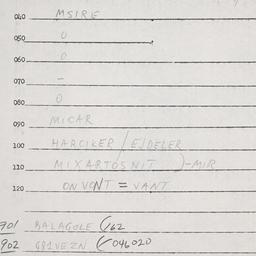 040 MSIRE
050 0
060 0
070 -
080 0
090 MICAR
100 HARCIKER / EJDELER
110 MIXARTOSNIT )-MIR
120 ON VONT = VANT
901 BALAGOLE (/62
902 G81VEZN (/046020